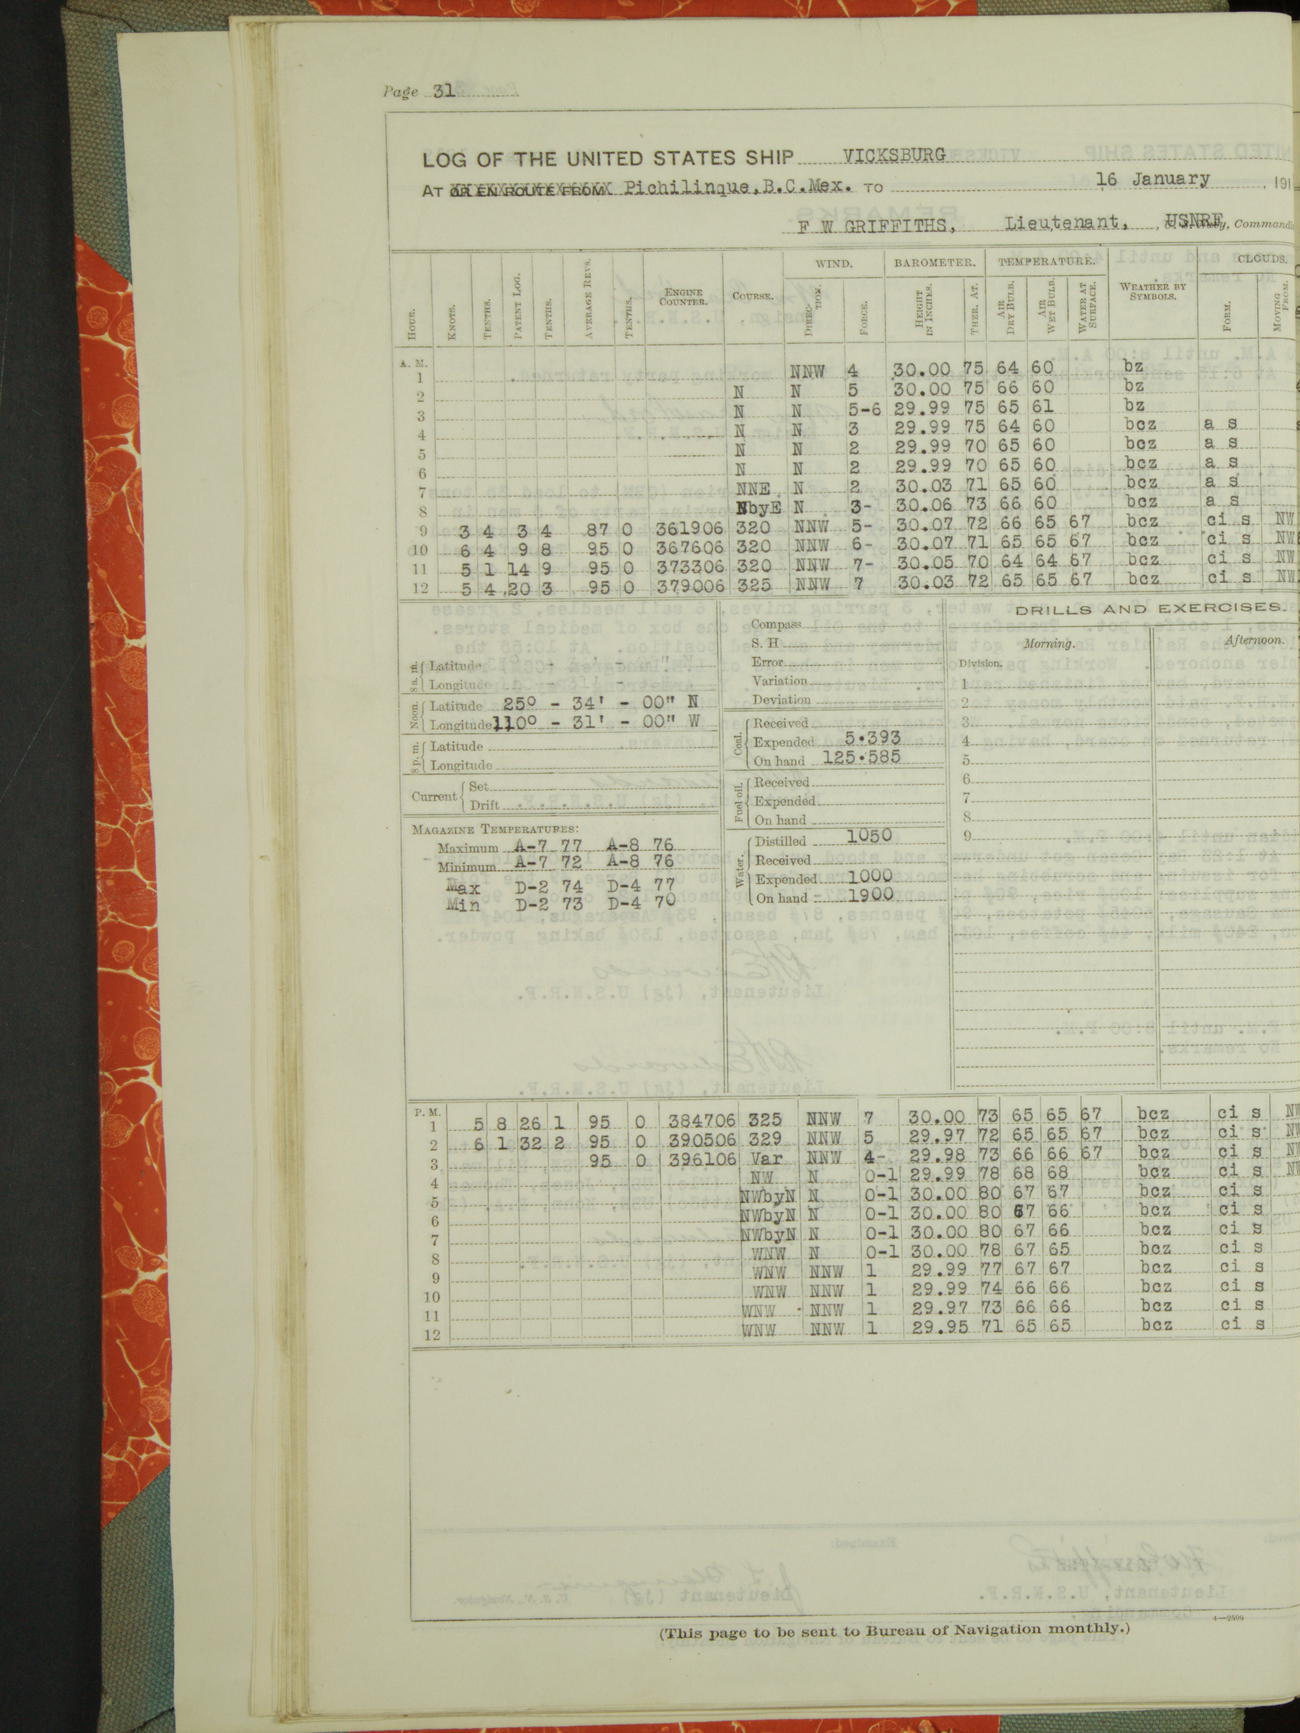 Page 31
LOG OF THE UNITED STATES SHIP VICKSBURG
AT OR EN ROUTE FROM Pichilinque, B.C. Mex. TO 16 January , 191
F W GRIFFITHS, Lieutenant, USNRF , Commandi
HOUR. KNOTS. TENTHS. PATENT LOG. TENTHS. AVERAGE REVS. TENTHS. ENGINE COUNTER. COURSE. WIND. DIRECTION. FORCE. BAROMETER. HEIGHT IN INCHES. THER. AT. TEMPERATURE. AIR DRY BULB. AIR WET BULB. WATER AT SURFACE. WEATHER BY SYMBOLS. CLOUDS. FORM. MOVING FROM.
A. M.
1 NNW 4 30.00 75 64 60 bz
2 N N 5 30.00 75 66 60 bz
3 N N 5-6 29.99 75 65 61 bz
4 N N 3 29.99 75 64 60 bcz a s
5 N N 2 29.99 70 65 60 bcz a s
6 N N 2 29.99 70 65 60 bcz a s
7 NNE N 2 30.03 71 65 60 bcz a s
8 NbyE N 3- 30.06 73 66 60 bcz a s
9 3 4 3 4 87 0 361906 320 NNW 5- 30.07 72 66 65 67 bcz ci s NW
10 6 4 9 8 95 0 367606 320 NNW 6- 30.07 71 65 65 67 bcz ci s NW
11 5 1 14 9 95 0 373306 320 NNW 7- 30.05 70 64 64 67 bcz ci s NW
12 5 4 20 3 95 0 379006 325 NNW 7 30.03 72 65 65 67 bcz ci s NW
8 a. m. Latitude
Longitude
Noon. Latitude 25° - 34' - 00" N
Longitude 110° - 31' - 00" W
8 p. m. Latitude
Longitude
Current Set
Drift
MAGAZINE TEMPERATURES:
Maximum A-7 77 A-8 76
Minimum A-7 72 A-8 76
Max D-2 74 D-4 77
Min D-2 73 D-4 70
Compass
S. H
Error
Variation
Deviation
Coal. Received
Expended 5.393
On hand 125.585
Fuel oil. Received
Expended
On hand
Water. Distilled 1050
Received
Expended 1000
On hand 1900
DRILLS AND EXERCISES.
Morning. Afternoon.
Division.
1
2
3
4
5
6
7
8
9
P. M.
1 5 8 26 1 95 0 384706 325 NNW 7 30.00 73 65 65 67 bcz ci s NW
2 6 1 32 2 95 0 390506 329 NNW 5 29.97 72 65 65 67 bcz ci s NW
3 95 0 396106 Var NNW 4- 29.98 73 66 66 67 bcz ci s NW
4 NW N 0-1 29.99 78 68 68 bcz ci s NW
5 NWbyN N 0-1 30.00 80 67 67 bcz ci s
6 NWbyN N 0-1 30.00 80 67 66 bcz ci s
7 NWbyN N 0-1 30.00 80 67 66 bcz ci s
8 WNW N 0-1 30.00 78 67 65 bcz ci s
9 WNW NNW 1 29.99 77 67 67 bcz ci s
10 WNW NNW 1 29.99 74 66 66 bcz ci s
11 WNW NNW 1 29.97 73 66 66 bcz ci s
12 WNW NNW 1 29.95 71 65 65 bcz ci s
4—2599
(This page to be sent to Bureau of Navigation monthly.)